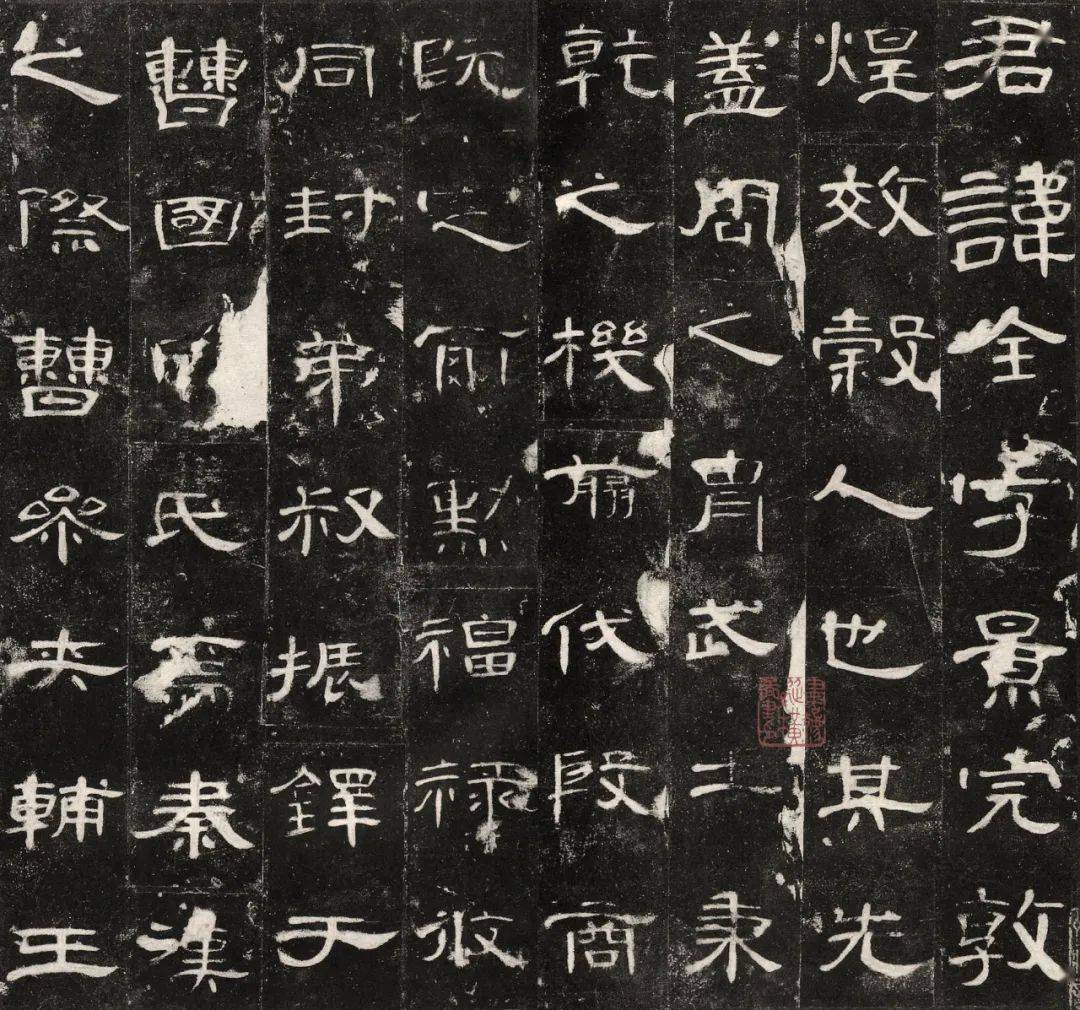 君諱全字景完敦
煌效穀人也其先
蓋周之胄武王秉
乾之機翦伐殷商
既定爾勲福祿攸
同封弟叔振鐸于
曹國因氏焉秦漢
之際曹參夾輔王